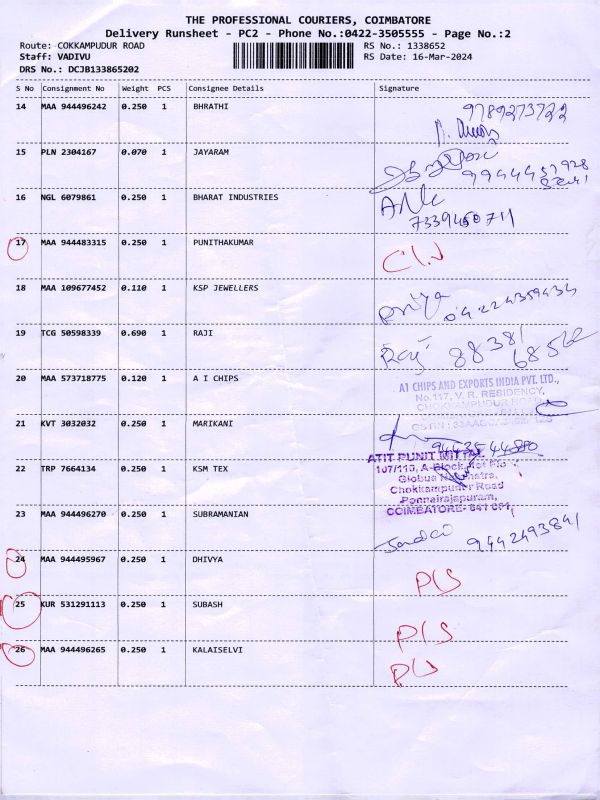 THE PROFESSIONAL COURIERS, COIMBATORE
Delivery Runsheet - PC2 - Phone No.:0422-3505555 - Page No.:2
Route: COKKAMPUDUR ROAD RS No.: 1338652
Staff: VADIVU RS Date: 16-Mar-2024
DRS No.: DCJB133865202
S No Consignment No Weight PCS Consignee Details Signature
14 MAA 944496242 0.250 1 BHRATHI 9789273722
15 PLN 2304167 0.070 1 JAYARAM
16 NGL 6079861 0.250 1 BHARAT INDUSTRIES
17 MAA 944483315 0.250 1 PUNITHAKUMAR
18 MAA 109677452 0.110 1 KSP JEWELLERS Priya 04224359434
19 TCG 50598339 0.690 1 RAJI Raji 88381
20 MAA 573718775 0.120 1 A I CHIPS
A1 CHIPS AND EXPORTS INDIA PVT. LTD.,
No.117, V. R. RESIDENCY,
CHOKKAMPUDUR ROAD
21 KVT 3032032 0.250 1 MARIKANI
ATIT PUNIT MITTAL
107/113, A-Block
22 TRP 7664134 0.250 1 KSM TEX
Chokkampudur Road
Ponnairajapuram,
COIMBATORE- 641 001
23 MAA 944496270 0.250 1 SUBRAMANIAN 9442493841
24 MAA 944495967 0.250 1 DHIVYA P/S
25 KUR 531291113 0.250 1 SUBASH P/S
26 MAA 944496265 0.250 1 KALAISELVI